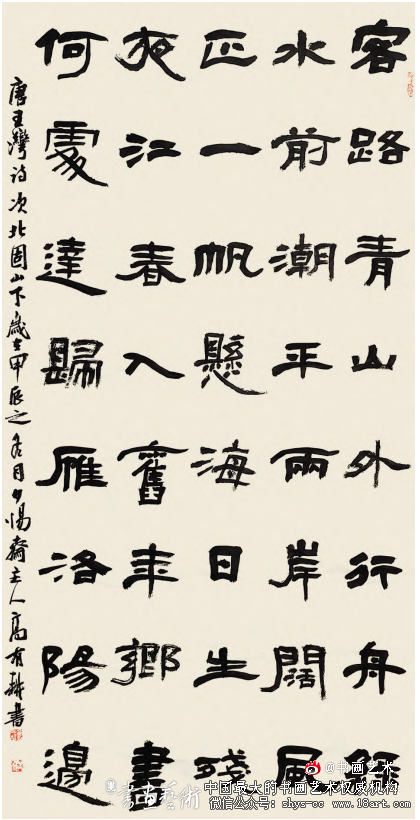 客路青山外行舟綠
水前潮平兩岸闊風
正一帆懸海日生殘
夜江春入舊年鄉書
何處達歸雁洛陽邊
唐王灣诗次北固山下歲在甲辰之冬月夕惕齋主人高有耕書
@书画艺术
書画藝術
中国最大的书画艺术权威机构
微信公众号: shys-cc www.18art.com